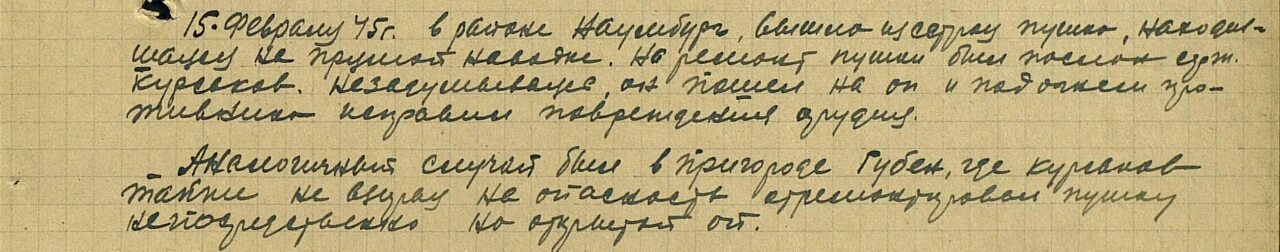 15. Февраля 45г. в районе Наумбург, вышла из строя пушка, находив-
шаяся на прямой наводке. На ремонт пушки был послан серж.
Курганов. Незадумываясь, он пошел на оп и под огнем про-
тивника исправил повреждения орудия.
Аналогичный случай был в пригороде Губен, где Курганов
также не взирая на опасность отремонтировал пушку
непосредственно на открытой оп.